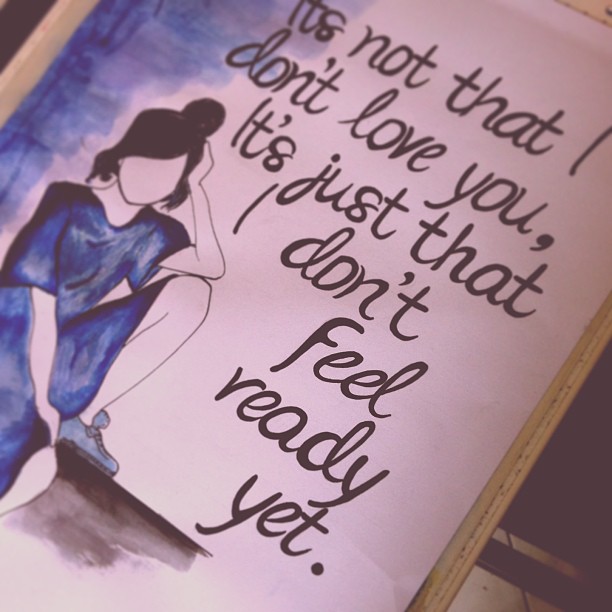 It's not that I
don't love you,
It's just that
I don't
feel
ready
yet.